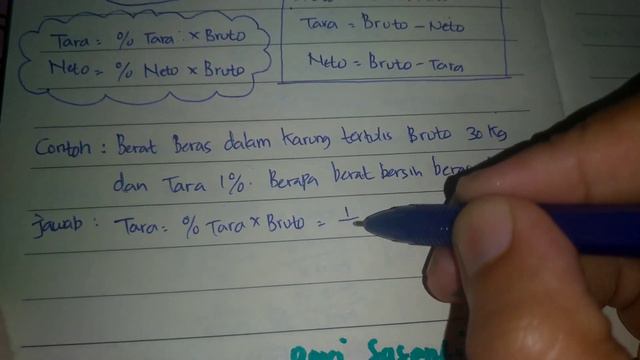 Tara = % Tara × Bruto
Neto = % Neto × Bruto
Tara = Bruto - Neto
Neto = Bruto - Tara
Contoh : Berat Beras dalam karung tertulis Bruto 30 Kg
dan Tara 1%. Berapa berat bersih
Jawab : Tara = % Tara × Bruto = 1